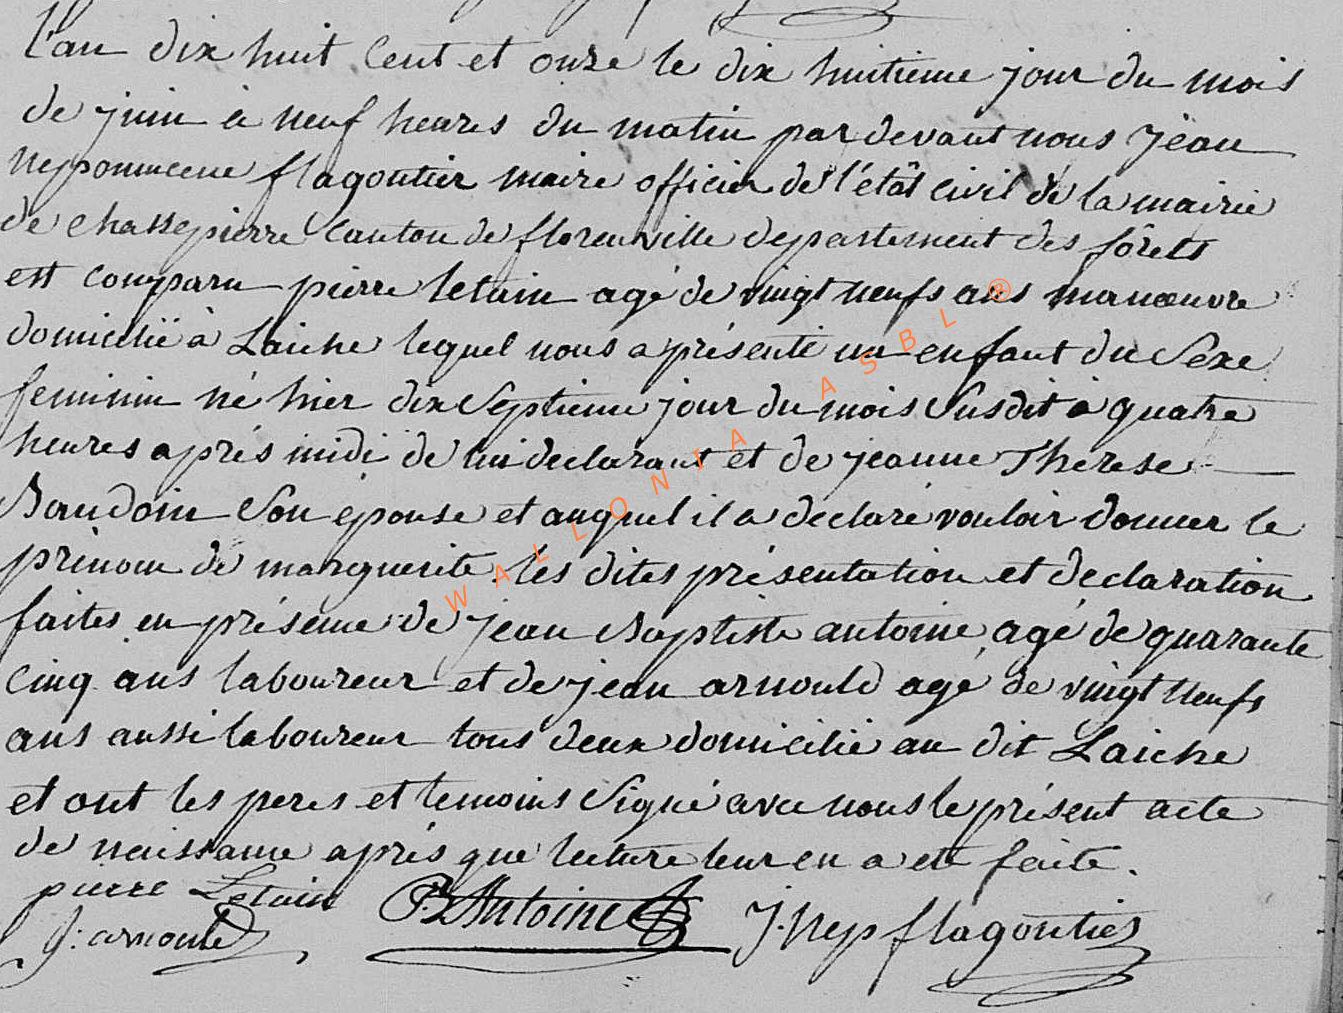 L'an dix huit cent et onze le dix huitieme jour du mois
de juin à neuf heures du matin par devant nous jean
nepomucene flagontier maire officier de l'étât civil de la mairie
de chassepierre canton de florenville departement des forêts
est comparu pierre letain agé de vingt neufs ans manœuvre
domicilié à Laiche lequel nous a présenté un enfant du Sexe
feminin né hier dix Septieme jour du mois Susdit à quatre
heures après midi de lui declarant et de jeanne Therese
Baudoin Son épouse et auquel il a déclaré vouloir donner le
prénom de marguerite, les dites présentation et declaration
faites en présence de jean Baptiste antoine, agé de quarante
cinq ans laboureur et de jean arnould agé de vingt neufs
ans aussi laboureur tous deux domicilié au dit Laiche
et ont les peres et temoins Signé avec nous le présent acte
de naissance après que lecture leur en a été faite.
pierre Letain
J: arnould
Antoine
J. Nep flagontier
WALLONIA ASBL ®